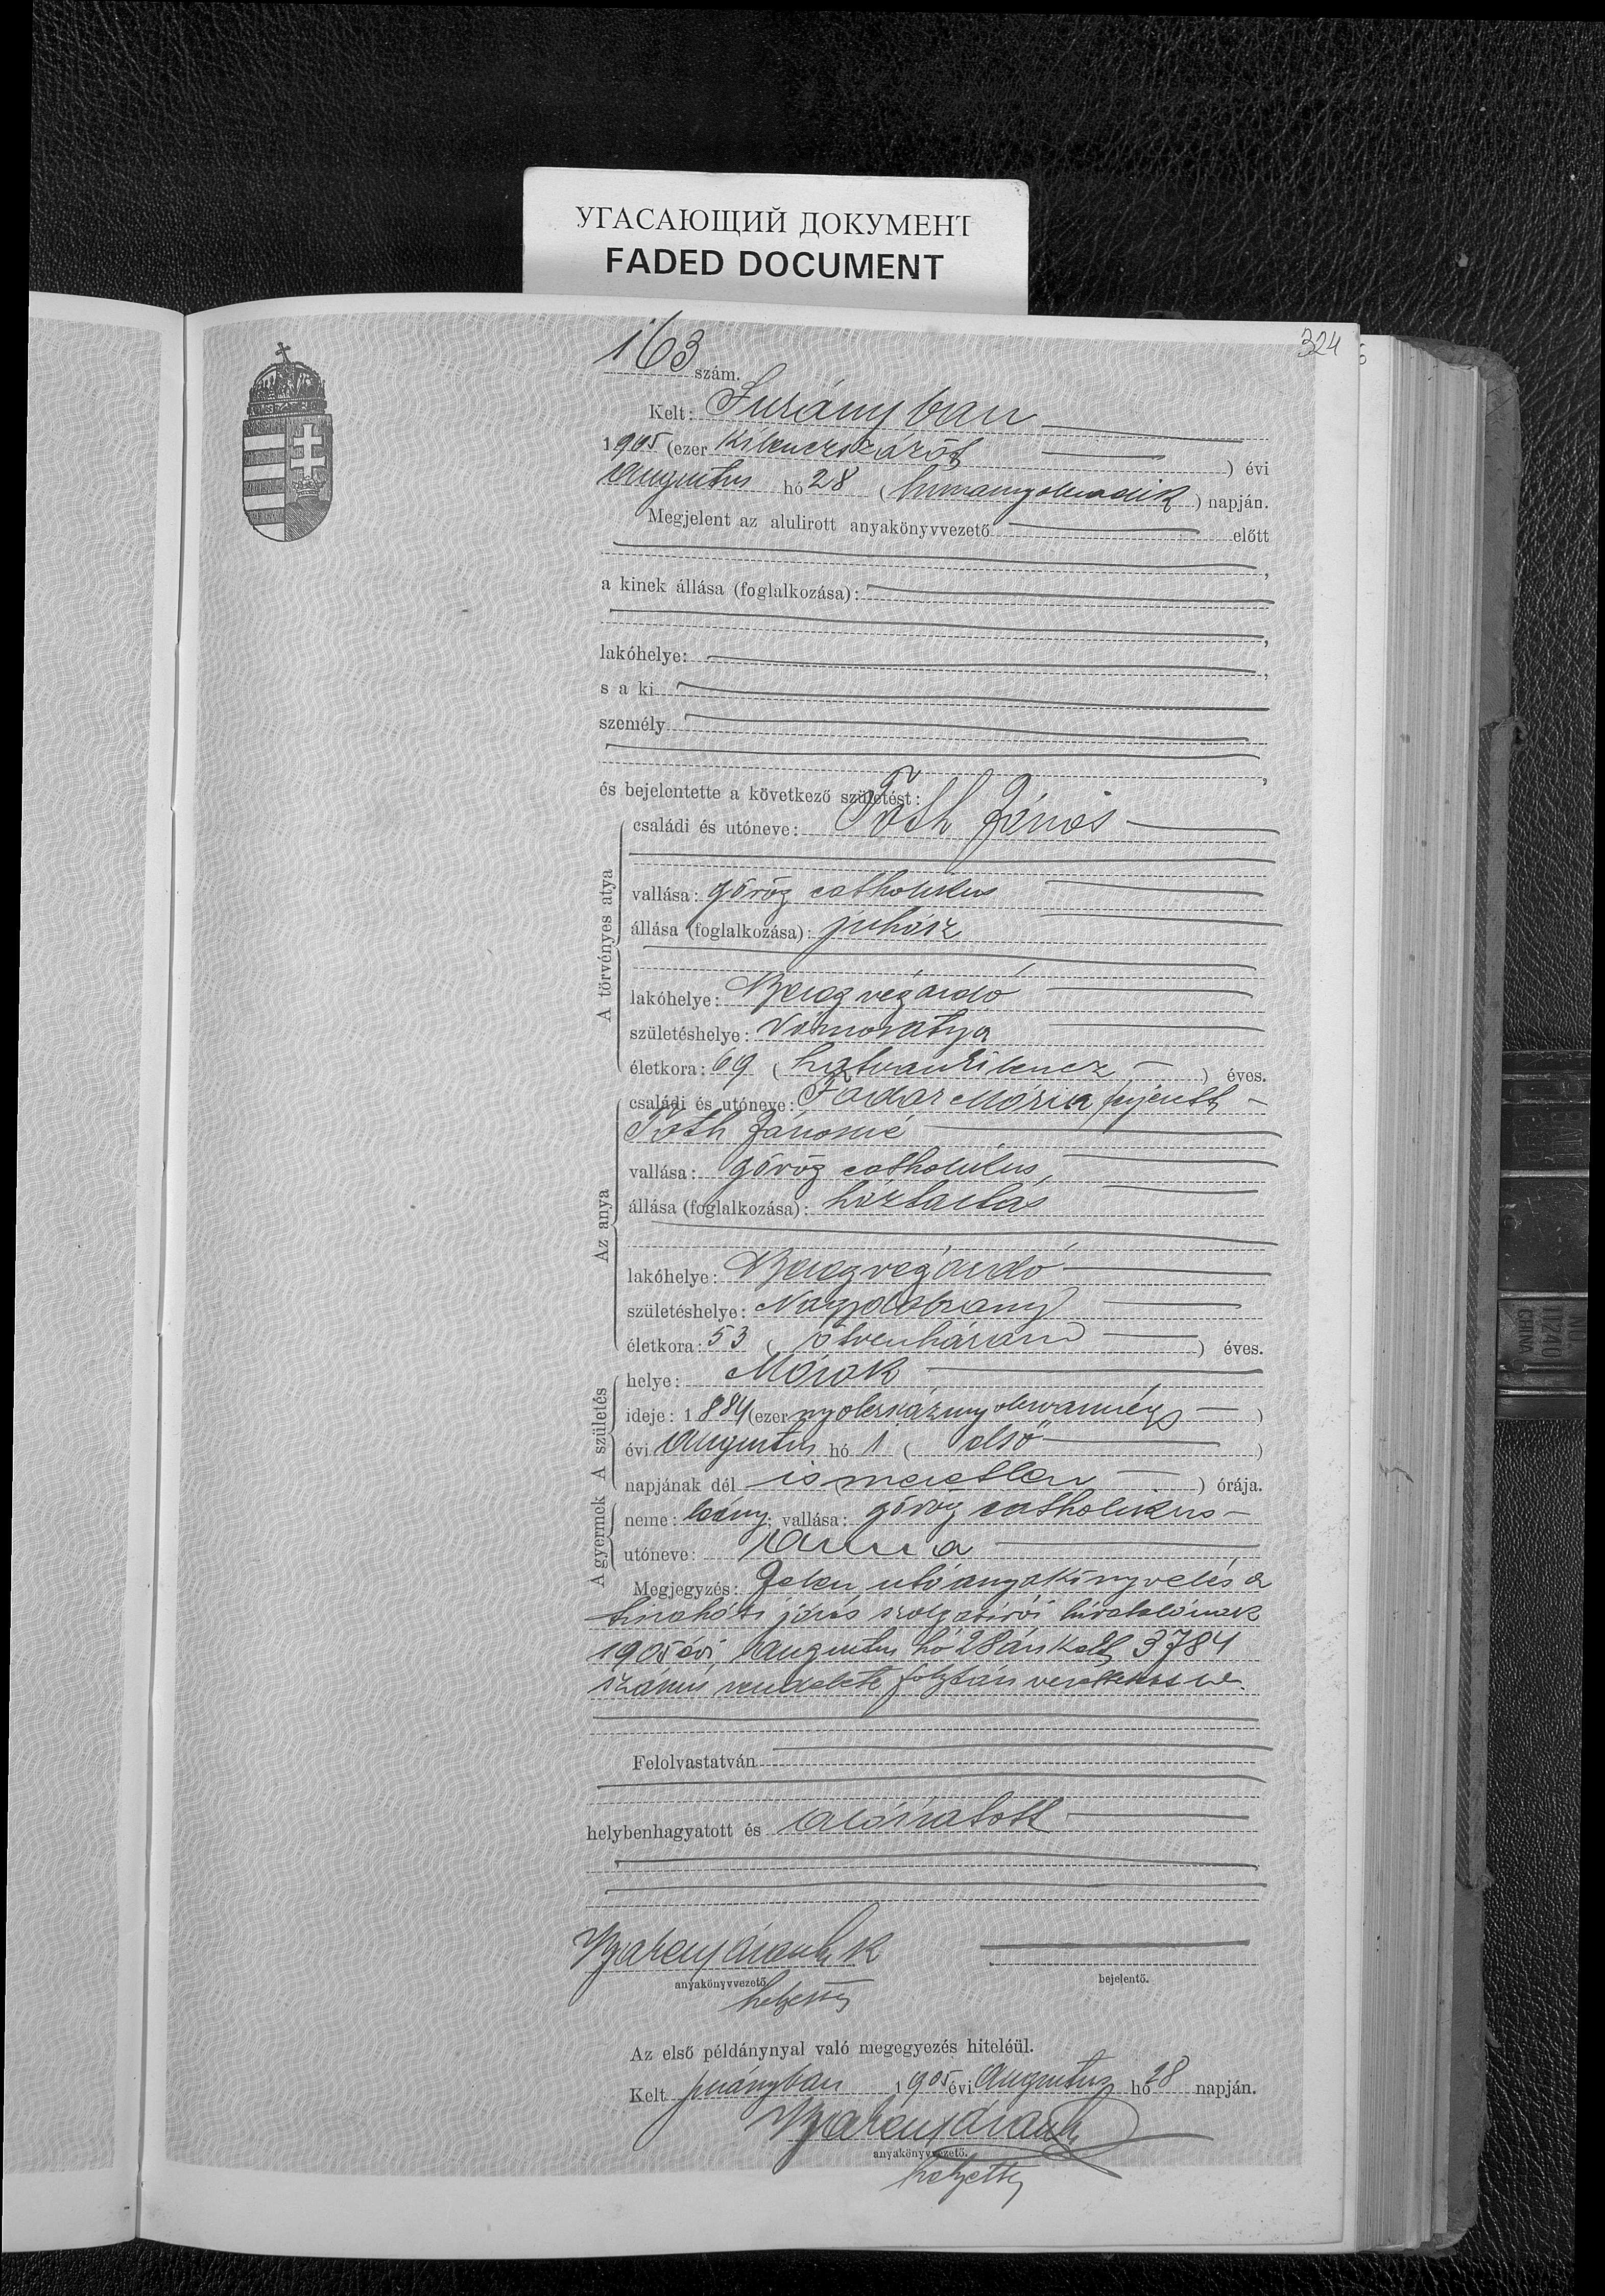 УГАСАЮЩИЙ ДОКУМЕНТ
FADED DOCUMENT
324
163 szám.
Kelt: Surányban
1905 (ezer kilenczszázöt ) évi
Augustus hó 28 (huszonnyolcadik) napján.
Megjelent az alulirott anyakönyvvezető előtt
a kinek állása (foglalkozása):
lakóhelye:
s a ki
személy
és bejelentette a következő születést:
A törvényes atya
családi és utóneve: Tóth János
vallása: görög catholikus
állása (foglalkozása): juhász
lakóhelye: Beregvégardó
születéshelye: Vámosatya
életkora: 69 (hatvankilencz) éves.
Az anya
családi és utóneve: Fodor Mária férjezett
Tóth Jánosné
vallása: görög catholikus
állása (foglalkozása): háztartás
lakóhelye: Beregvégardó
születéshelye: Nagydobrony
életkora: 53 (ötvenhárom) éves.
A születés
helye: Mórok
ideje: 1884 (ezer nyolcszáznyolcvannégy)
évi Augustus hó 1 (első)
napjának dél ismeretlen ) órája.
A gyermek
neme: leány, vallása: görög catholikus
utóneve: Anna
Megjegyzés: Jelen utóanyakönyvelés a
tiszaháti járás szolgabírói hivatalának
1905 évi Augustus hó 28án kelt 3784
számú rendelete folytán vezettetett be.
Felolvastatván
helybenhagyatott és aláíratott
anyakönyvvezető
helyettes
bejelentő.
Az első példánynyal való megegyezés hiteléül.
Kelt Surányban 1905 évi Augustus hó 28 napján.
anyakönyvvezető.
helyettes